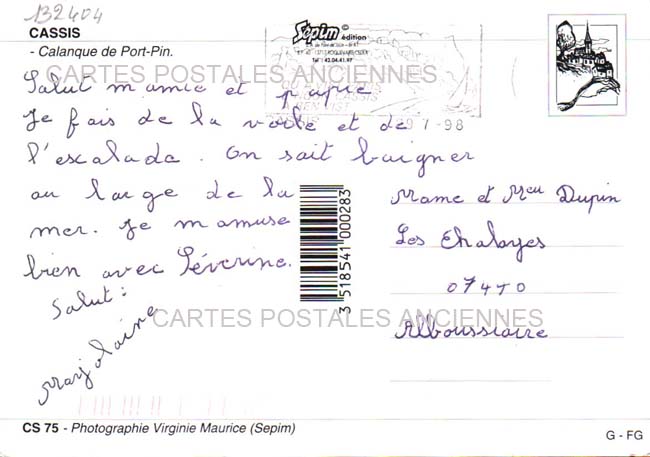 132404
CASSIS
- Calanque de Port-Pin.
Sepim © édition
Tél : 42.04.41.97
CARTES POSTALES ANCIENNES
9 7 -98
Salut mamie et papie
Je fais de la voile et de
l'escalade. On sait baigner
au large de la
mer. Je m amuse
bien avec Séverine.
Salut :
Marjolaine
3 518541 000283
Mame et Meu Dupin
Les Chalayes
07470
Alboussiaire
CARTES POSTALES ANCIENNES
CS 75 - Photographie Virginie Maurice (Sepim)
G - FG